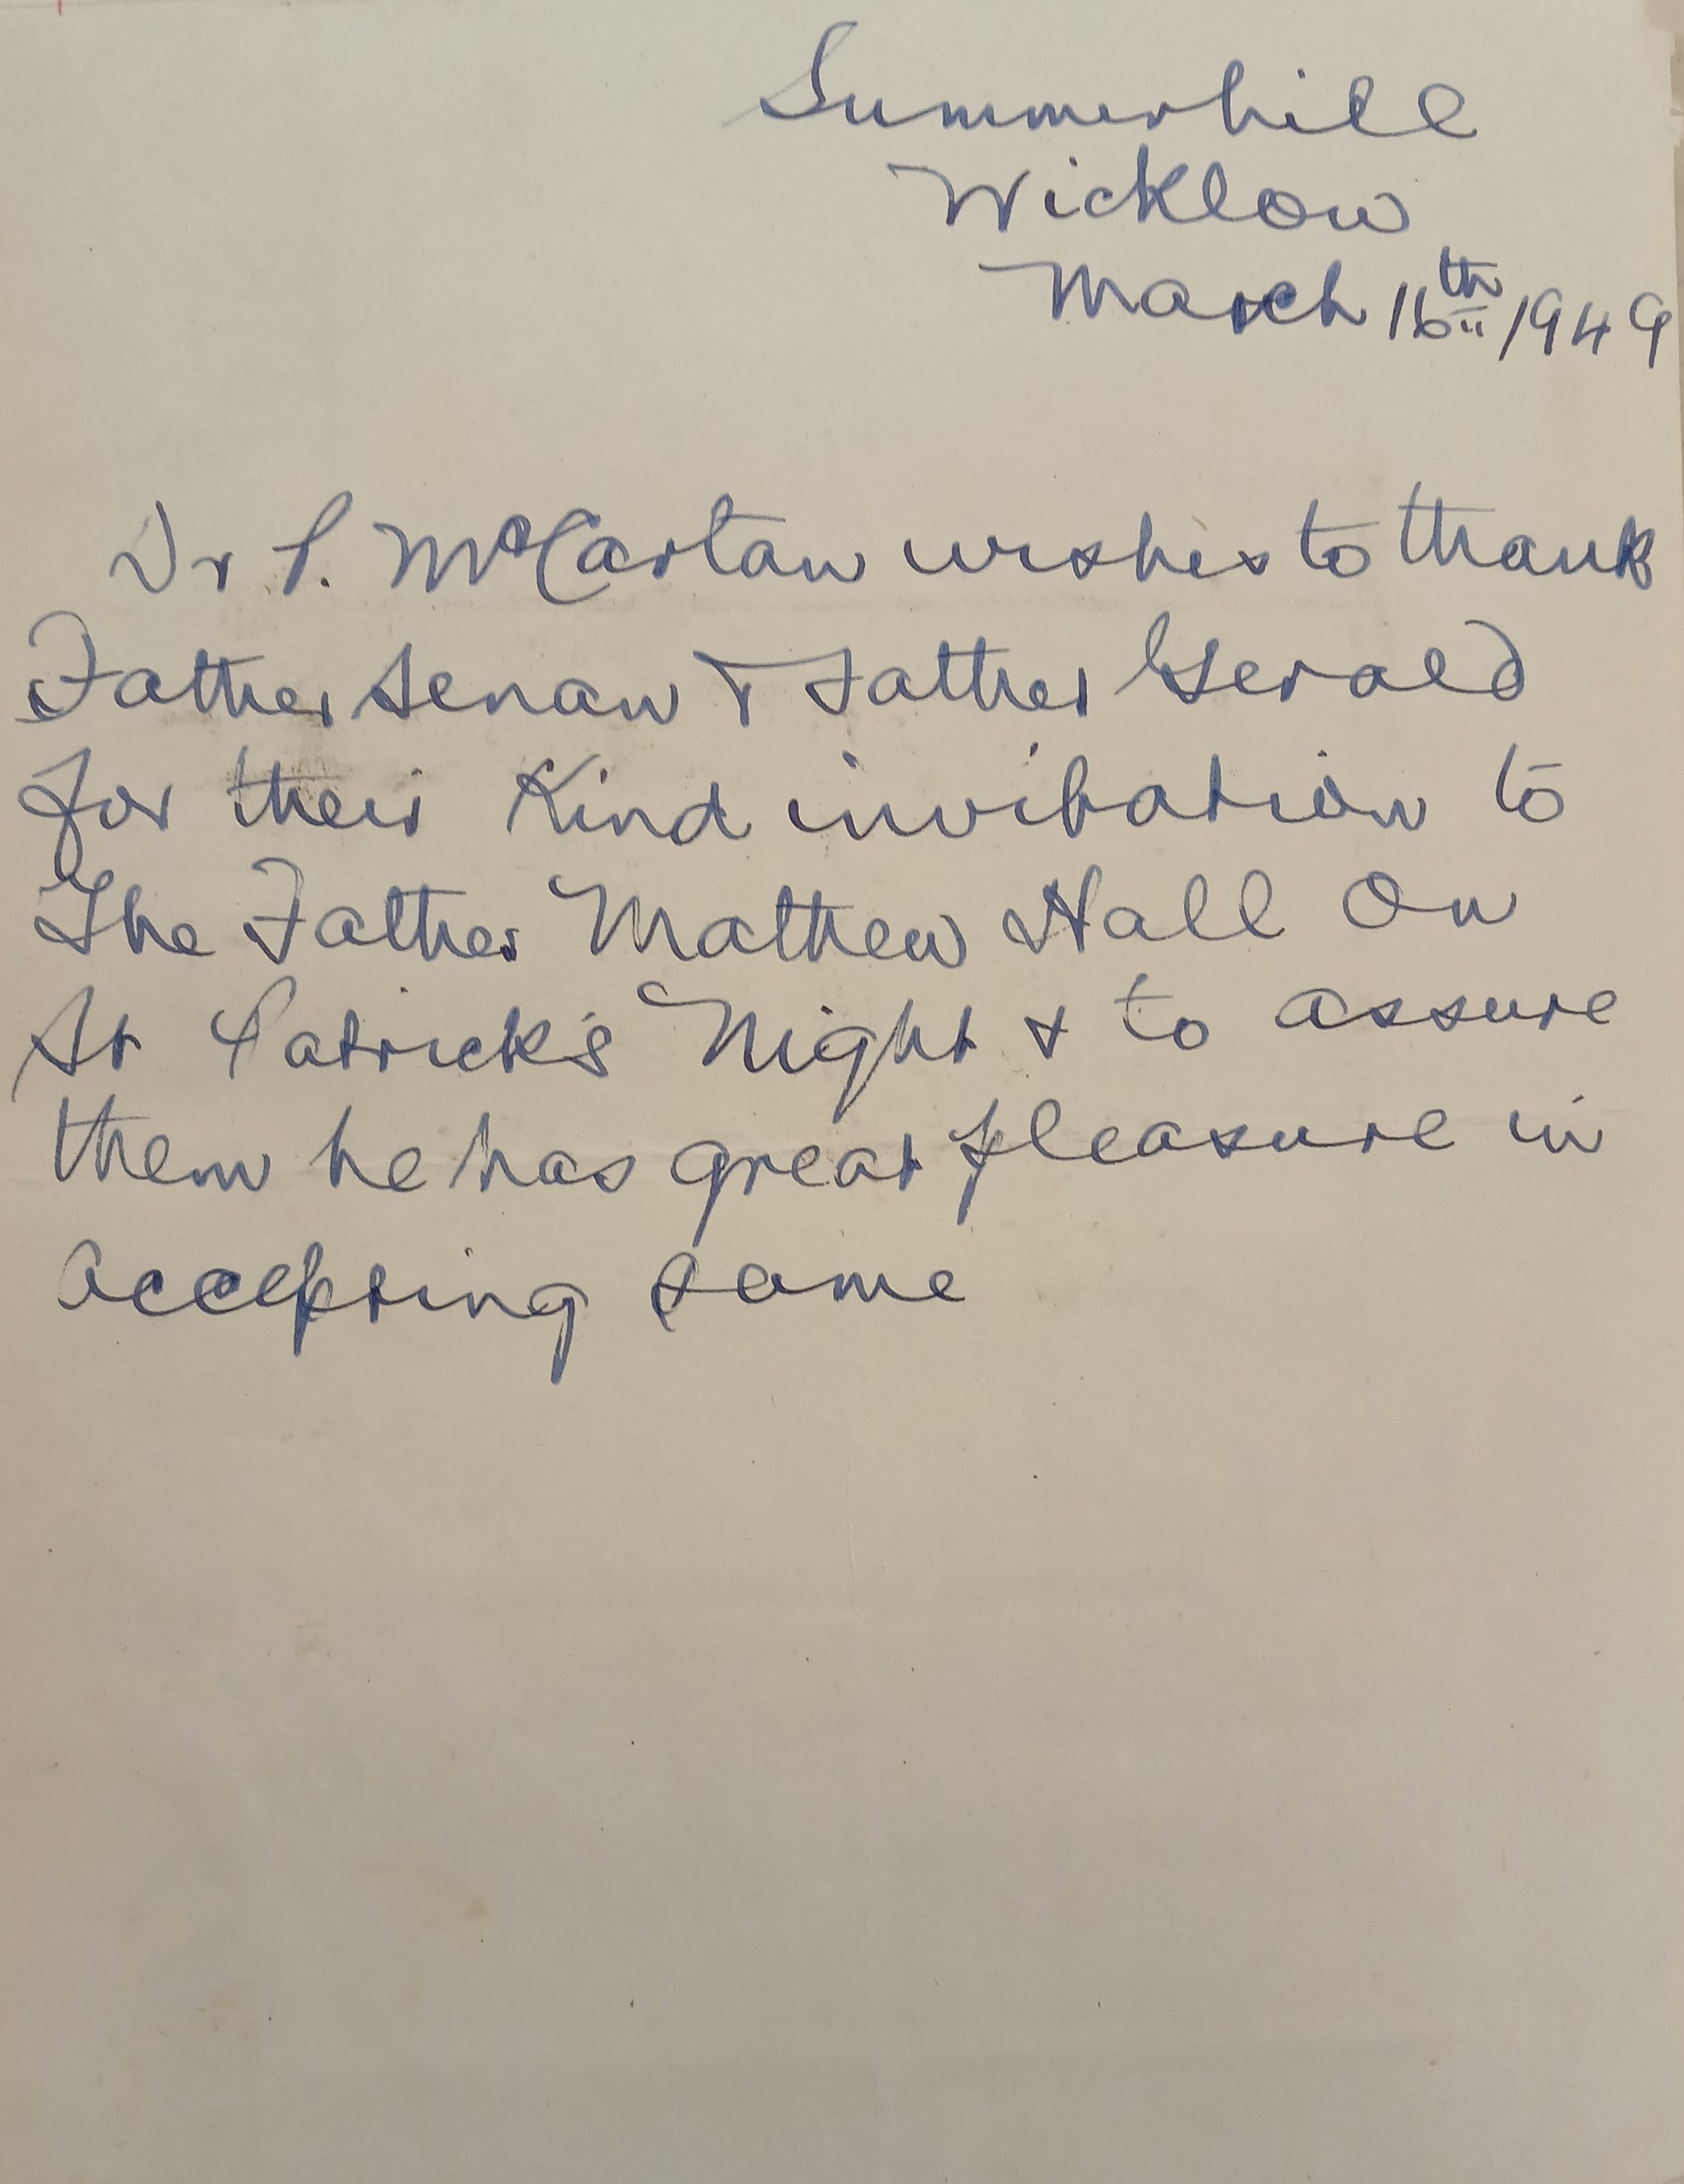 Summerhill
Wicklow
March 16th 1949
Dr P. McCartan wishes to thank
Father Senan & Father Gerald
for their Kind invitation to
The Father Mathew Hall On
St Patrick's Night & to assure
them he has great pleasure in
accepting same